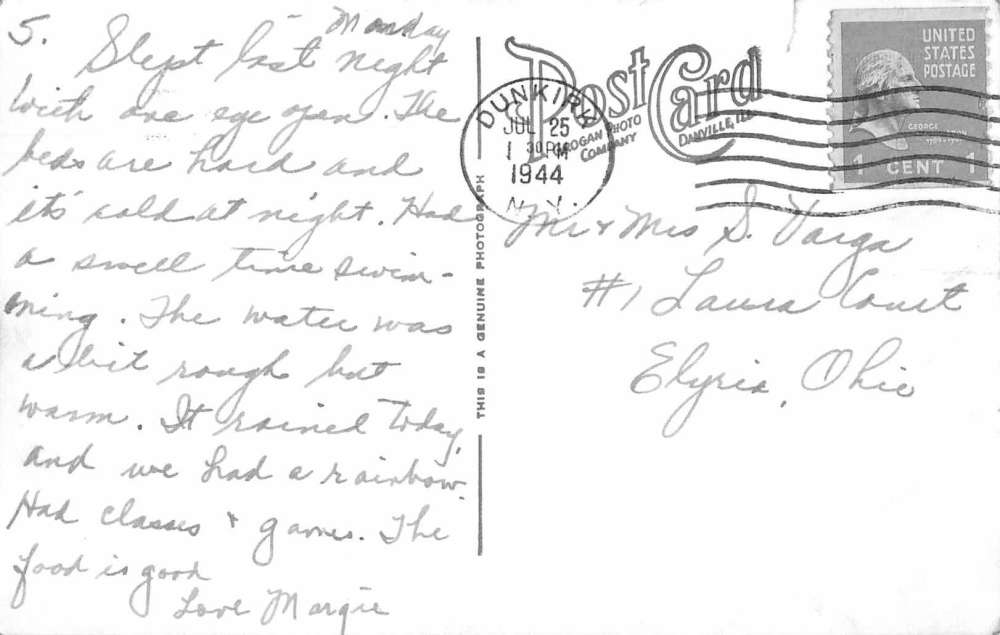 5. Monday
Slept last night
with one eye open. The
beds are hard and
it's cold at night. Had
a swell time swim-
ming. The water was
a bit rough but
warm. It rained today,
and we had a rainbow.
Had classes + games. The
food is good
Love Margie
THIS IS A GENUINE PHOTOGRAPH
Post Card
GROGAN PHOTO
COMPANY
DANVILLE, ILL.
DUNKIRK
JUL 25
1 30 PM
1944
N.Y.
UNITED
STATES
POSTAGE
GEORGE
1 CENT 1
Mr + Mrs S. Varga
#1 Laura Court
Elyria, Ohio